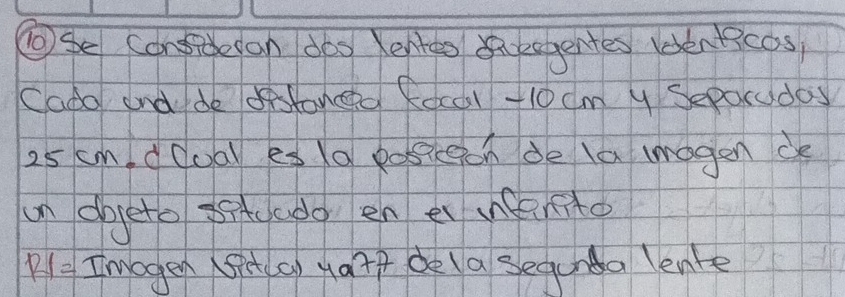 10 Se consideran dos lentes divergentes identicos,
Cada una de distancia focal -10 cm y Separadas
25 cm. ¿Cual es la posición de la imagen de
un objeto situado en el infinito
R/= Imagen virtual de la segunda lente